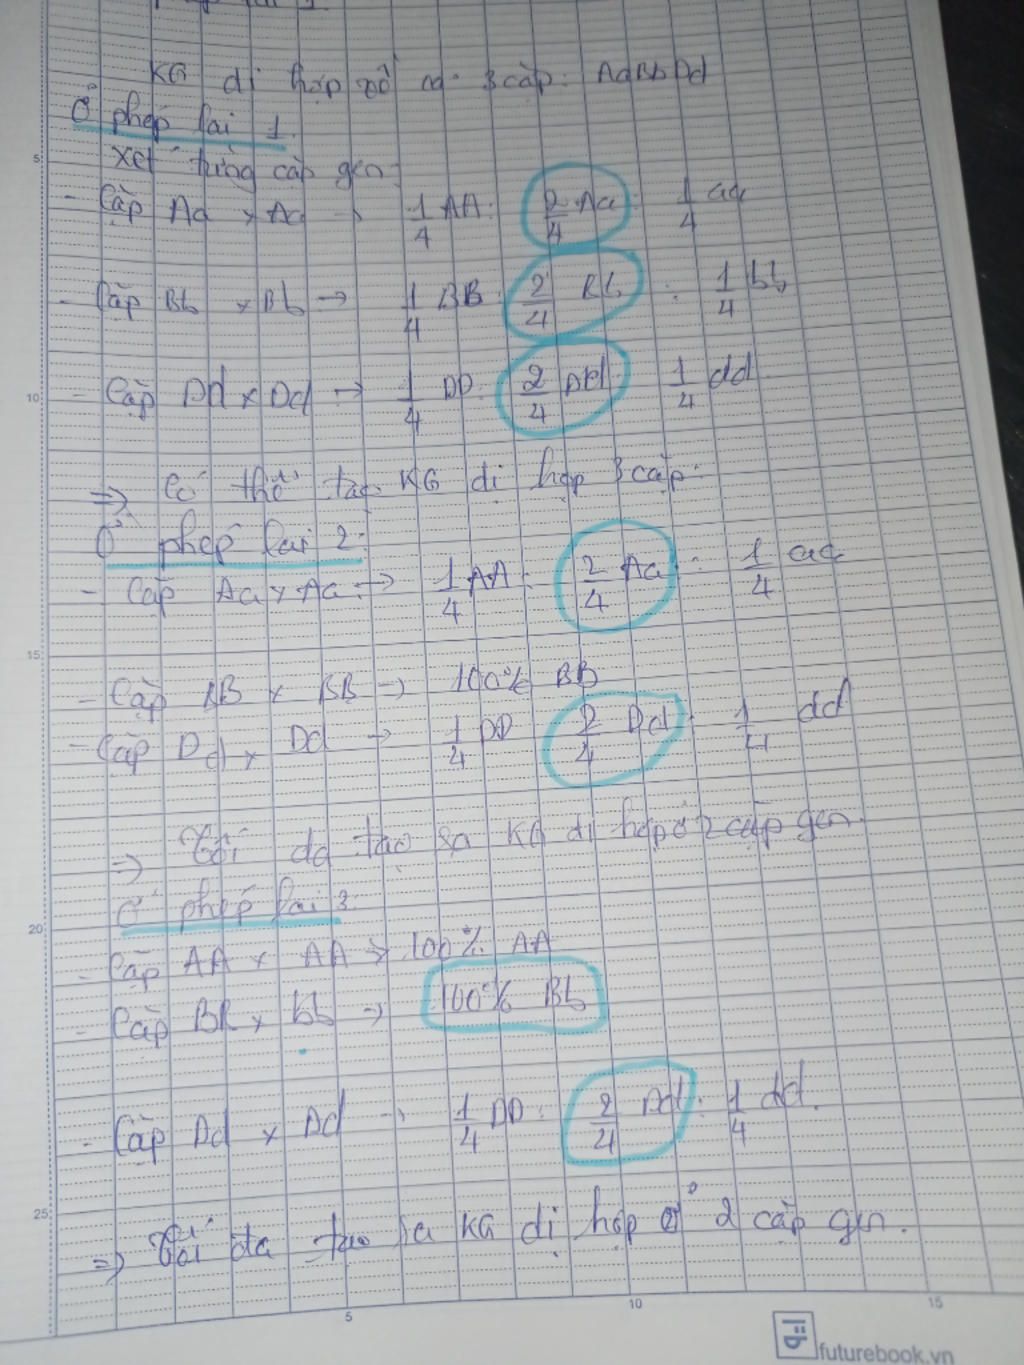 KG dị hợp về cả 3 cặp: AaBbDd
Ở phép lai 1.
Xét từng cặp gen:
- Cặp Aa x Aa → 1/4 AA: 2/4 Aa: 1/4 aa
- Cặp Bb x Bb → 1/4 BB: 2/4 Bb : 1/4 bb
- Cặp Dd x Dd → 1/4 DD: 2/4 Dd: 1/4 dd
⇒ Có thể tạo KG dị hợp 3 cặp.
Ở phép lai 2:
- Cặp Aa x Aa → 1/4 AA: 2/4 Aa : 1/4 aa
- Cặp BB x BB → 100% BB
- Cặp Dd x Dd → 1/4 DD 2/4 Dd: 1/4 dd
⇒ Tối đa tạo ra KG dị hợp ở 2 cặp gen.
Ở phép lai 3:
- Cặp AA x AA → 100% AA
- Cặp BB x bb → 100% Bb
- Cặp Dd x Dd → 1/4 DD: 2/4 Dd: 1/4 dd.
⇒ Tối đa tạo ra KG dị hợp ở 2 cặp gen.
5
10
15
20
25
5 10 15
futurebook.vn